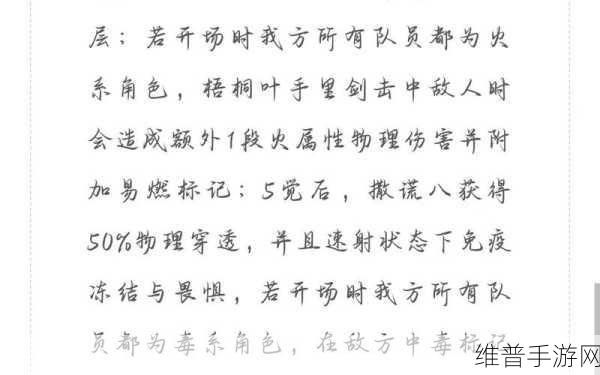 层；若开场时我方所有队员都为火
系角色，梧桐叶手里剑击中敌人时
会造成额外1段火属性物理伤害并附
加易燃标记；5觉后，撒谎八获得
50%物理穿透，并且速射状态下免疫
冻结与畏惧，若开场时我方所有队
员都为毒系角色，在敌方中毒标记
维普手游网